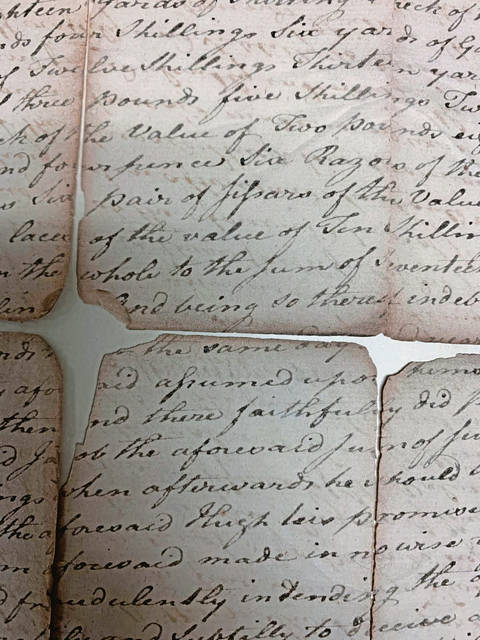 Yards of
four Shillings Six yards of
Twelve Shillings Thirteen yar
three pounds five Shillings Tw
of the Value of Two pounds
and fourpence Six Razors of the
Six pair of sissars of the Value
laces of the value of Ten Shillin
the whole to the Sum of seventeen
And being so thereof indeb
the same day
afores aid assumed upon
then and there faithfully did
Jacob the aforesaid Sum of
when afterwards he should
the aforesaid Hugh his promise
aforesaid made in no wise
fraudulently intending the
and subtilly to deceive